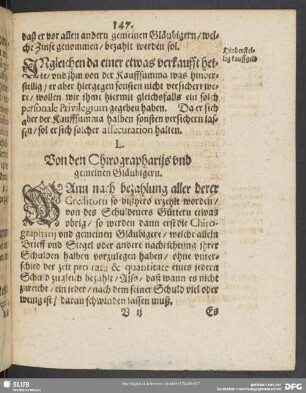 147.
daß er vor allen andern gemeinen Gläubigern / wel-
che Zinse genommen / bezahlt werden sol.
Hinderstel-
lig kauffgeld
INgleichen da einer etwas verkaufft het-
te / vnd ihm von der Kauffsumma was hinder-
stellig / er aber hiergegen sonsten nicht versichert we-
re / wollen wir ihme hiermit gleichsfalls ein solch
personale Privilegium gegeben haben. Da er sich
aber der Kauffsumma halben sonsten versichern las-
sen / sol er sich solcher assecuration halten.
L.
Von den Chirographarijs vnd
gemeinen Gläubigern.
WAnn nach bezahlung aller derer
Creditorn so bißhero erzehlt worden /
von des Schuldeners Güttern etwas
vbrig / so werden dann erst die Chiro-
grapharij vnd gemeinen Gläubigere / welche allein
Brieff vnd Siegel oder andere nachrichtung ihrer
Schulden halben vorzulegen haben / ohne vnter-
schied der zeit pro rata & quantitate eines jedern
Schuld zugleich bezahlt / Also / daß wann es nicht
zureicht / ein jeder / nach dem seiner Schuld viel oder
wenig ist / daran schwinden lassen muß.
V ij
Es
SLUB
Wir führen Wissen.